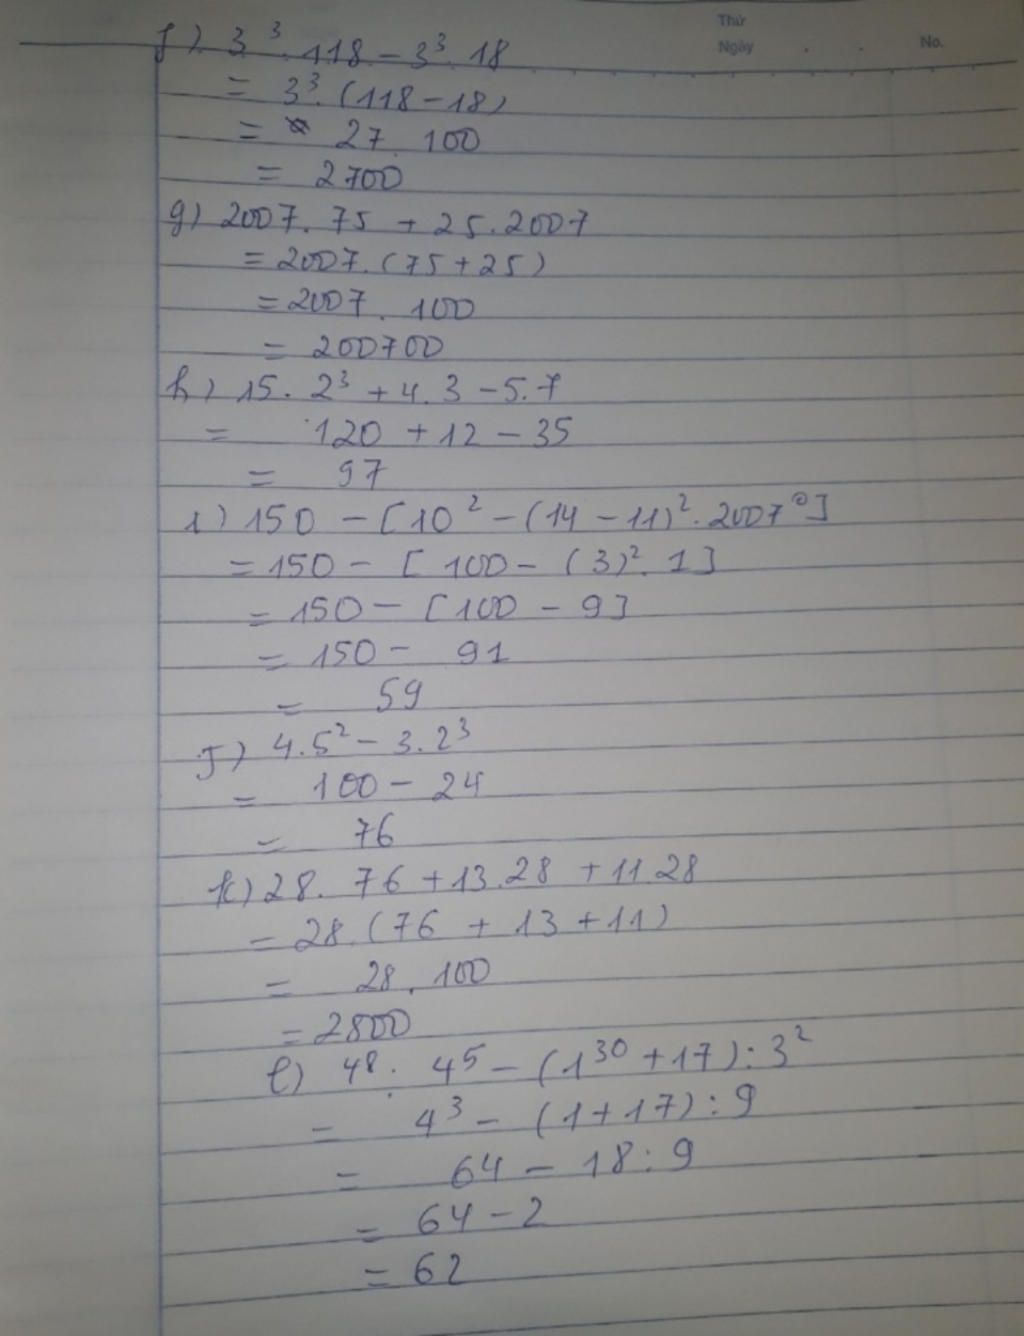 Thứ
Ngày . . No.
f) 3³.118 - 3³.18
= 3³.(118-18)
= 27.100
= 2700
g) 2007.75 + 25.2007
= 2007.(75+25)
= 2007.100
= 200700
h) 15.2³ + 4.3 - 5.7
= 120 + 12 - 35
= 97
i) 150 - [10² - (14 - 11)².2007⁰]
= 150 - [100 - (3)².1]
= 150 - [100 - 9]
= 150 - 91
= 59
j) 4.5² - 3.2³
= 100 - 24
= 76
k) 28.76 + 13.28 + 11.28
= 28.(76 + 13 + 11)
= 28.100
= 2800
l) 4⁸: 4⁵ - (1³⁰ + 17): 3²
= 4³ - (1 + 17): 9
= 64 - 18: 9
= 64 - 2
= 62